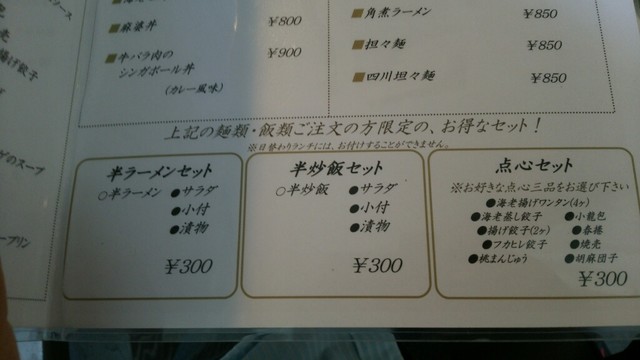 ソース
¥800
■麻婆丼
¥900
■牛バラ肉の
シンガポール丼
(カレー風味)
■角煮ラーメン ¥850
■担々麺 ¥850
■四川坦々麺 ¥850
上記の麺類・飯類ご注文の方限定の、お得なセット!
※日替わりランチには、お付けすることができません。
半ラーメンセット
○半ラーメン ●サラダ
●小付
●漬物
¥300
半炒飯セット
○半炒飯 ●サラダ
●小付
●漬物
¥300
点心セット
※お好きな点心三品をお選び下さい
●海老揚げワンタン(4ヶ)
●海老蒸し餃子 ●小籠包
●揚げ餃子(2ヶ) ●春捲
●フカヒレ餃子 ●焼売
●桃まんじゅう ●胡麻団子
¥300
揚げ餃子
のスープ
ープリン